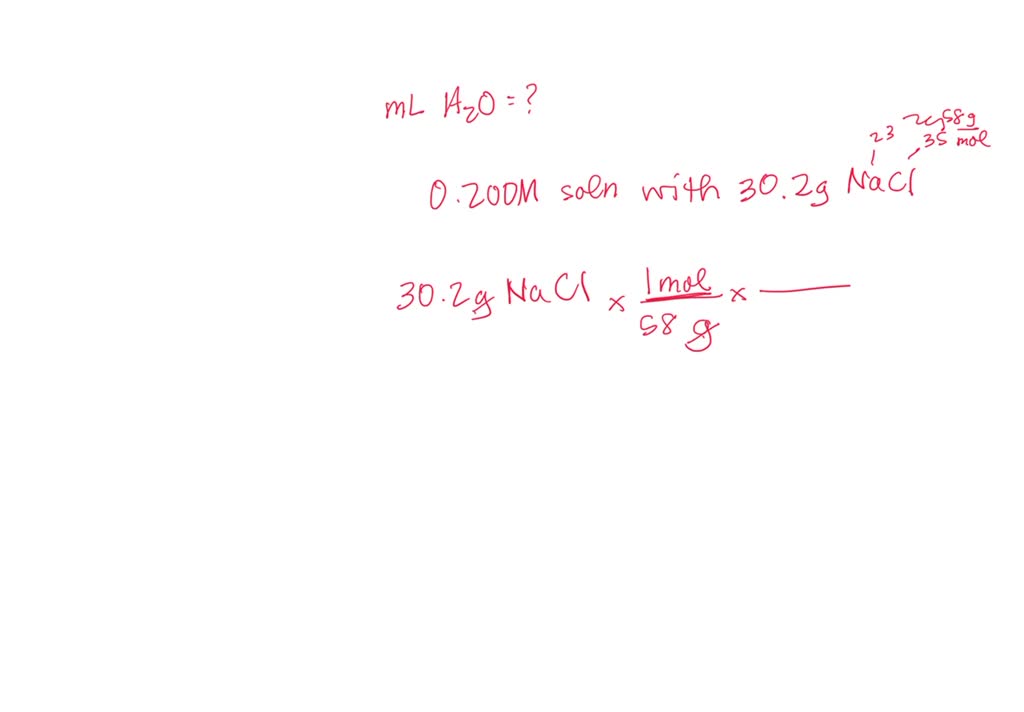 mL H₂O = ?
58g
23 35 mol
0.200M soln with 30.2g NaCl
30.2g NaCl x 1mol x
58 g